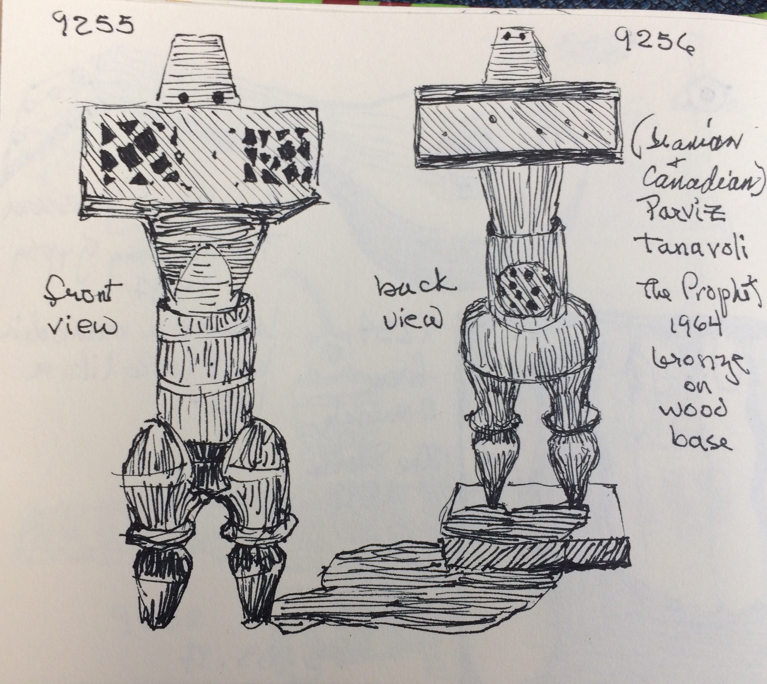 9255
9256
front
view
back
view
(Iranian
+
Canadian)
Parviz
Tanavoli
The Prophet,
1964
bronze
on
wood
base